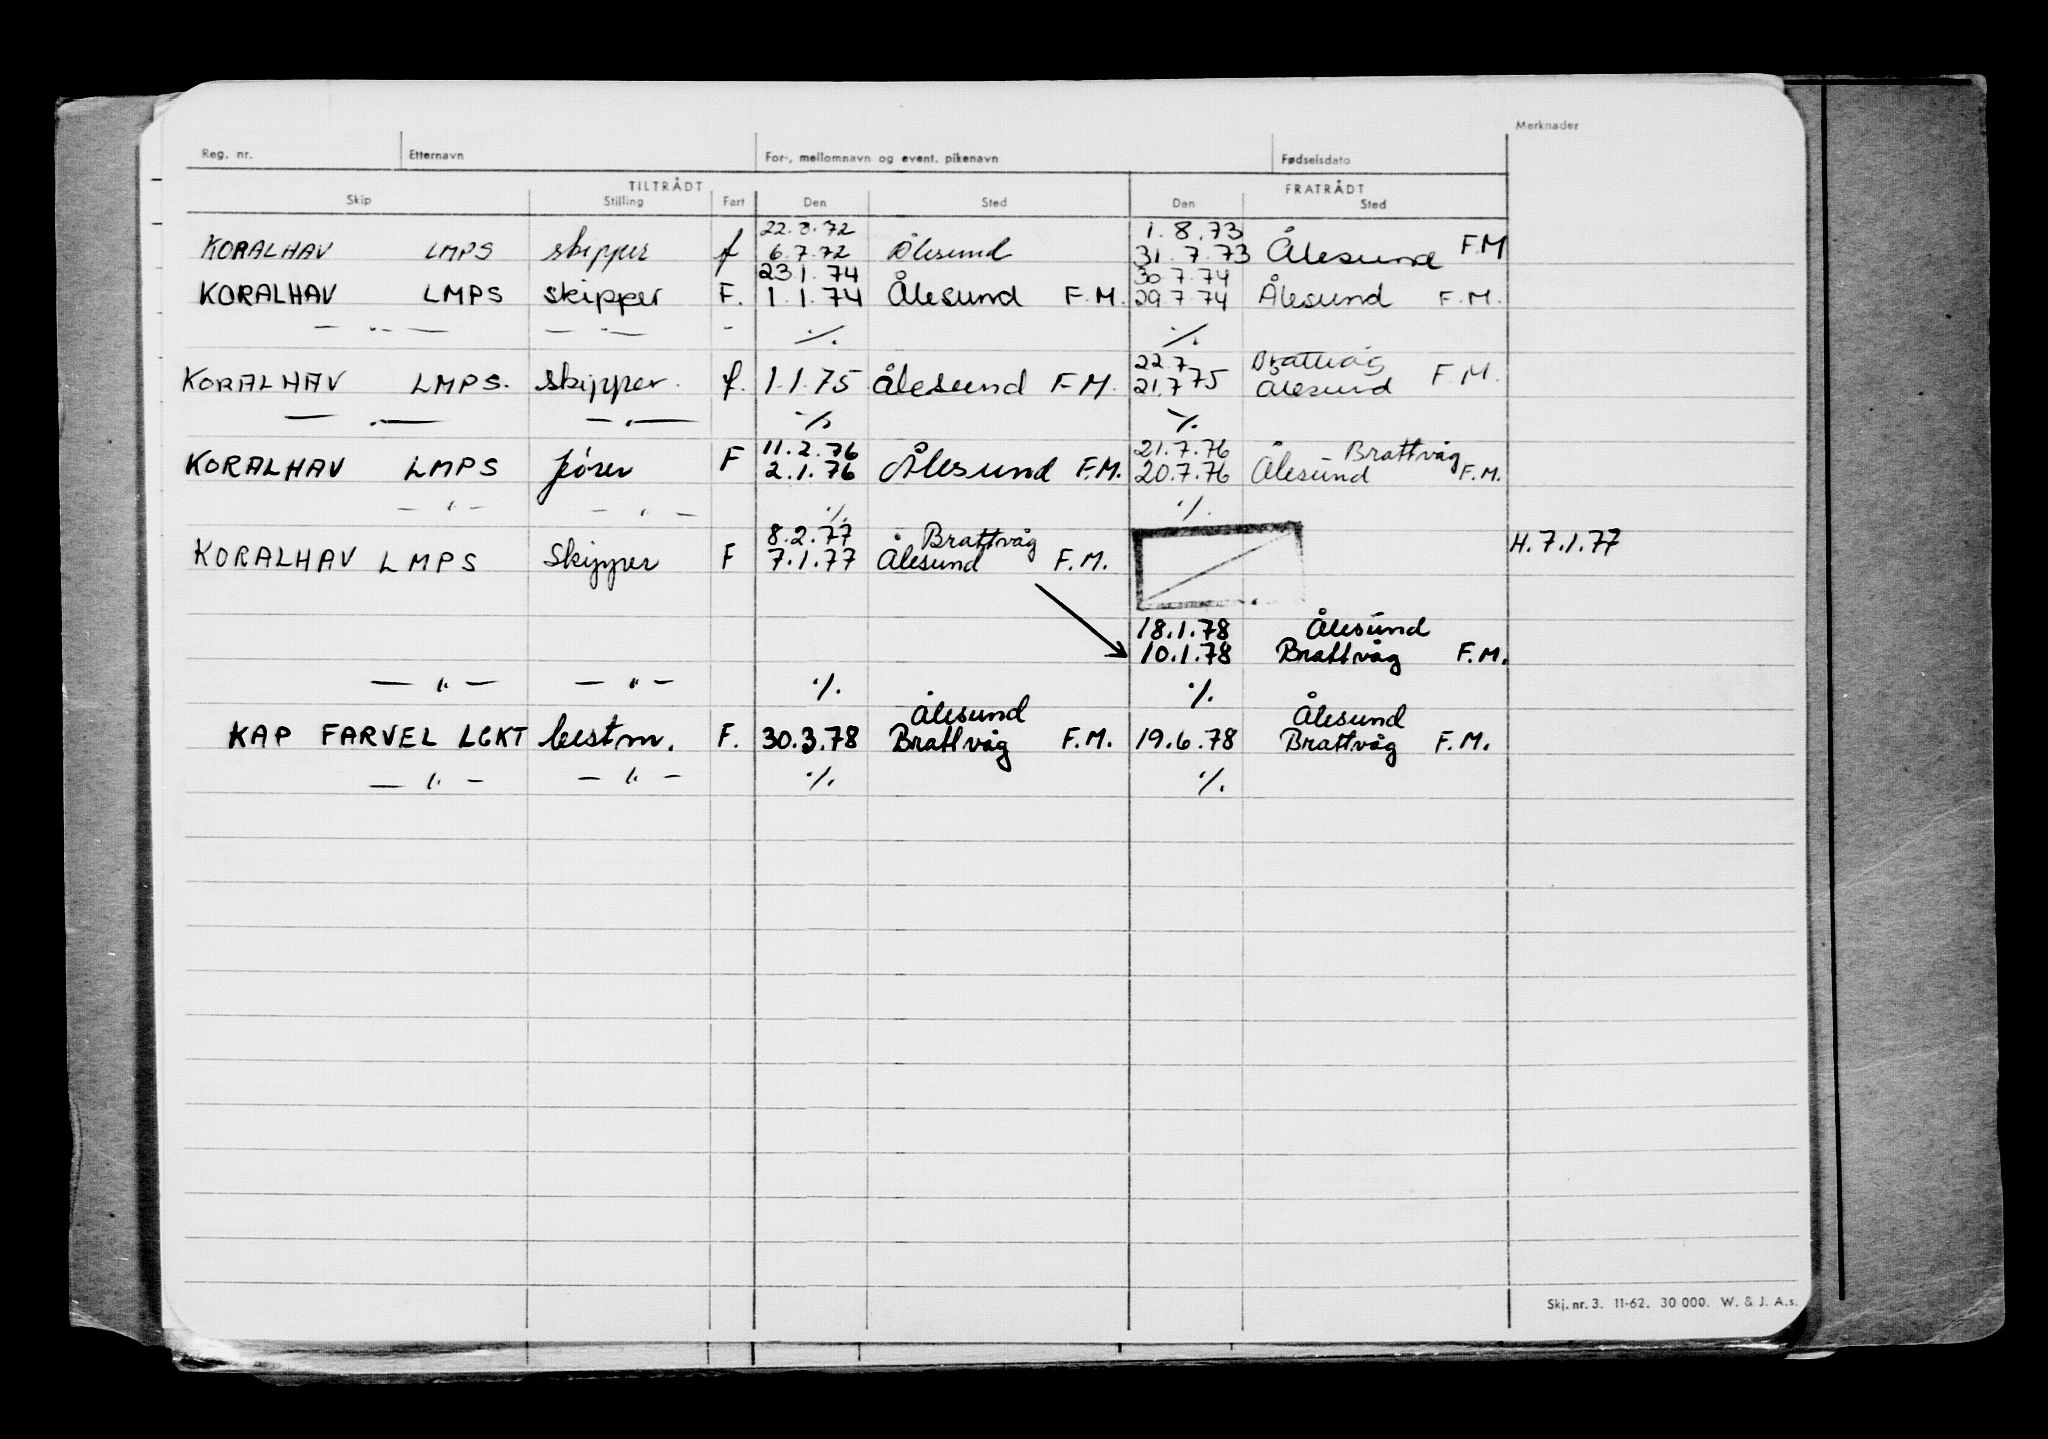 Merknader
Reg. nr. Etternavn For-, mellomnavn og event. pikenavn Fødselsdato
TILTRÅDT FRATRÅDT
Skip Stilling Fart Den Sted Den Sted
22.8.72 1.8.73
KORALHAV LMPS skipper f 6.7.72 Ålesund 31.7.73 Ålesund F.M
23.1.74 30.7.74
KORALHAV LMPS skipper F. 1.1.74 Ålesund F.M. 29.7.74 Ålesund F.M.
— " — — " — - ·/. ·/.
22.7 Brattvåg
KORALHAV LMPS. skipper. f. 1.1.75 Ålesund F.M. 21.7.75 Ålesund F.M.
— " — — " — ·/. ·/.
11.2.76 21.7.76 Brattvåg
KORALHAV LMPS fører F 2.1.76 Ålesund F.M. 20.7.76 Ålesund F.M.
— " — — " — ·/. ·/.
8.2.77 Brattvåg
KORALHAV LMPS Skipper F 7.1.77 Ålesund F.M. H. 7.1.77
18.1.78 Ålesund
10.1.78 Brattvåg F.M.
— " — — " — ·/. ·/.
Ålesund Ålesund
KAP FARVEL LGKT bestm. F. 30.3.78 Brattvåg F.M. 19.6.78 Brattvåg F.M.
— " — — " — ·/. ·/.
Skj. nr. 3. 11-62. 30 000. W. & J. A.s.